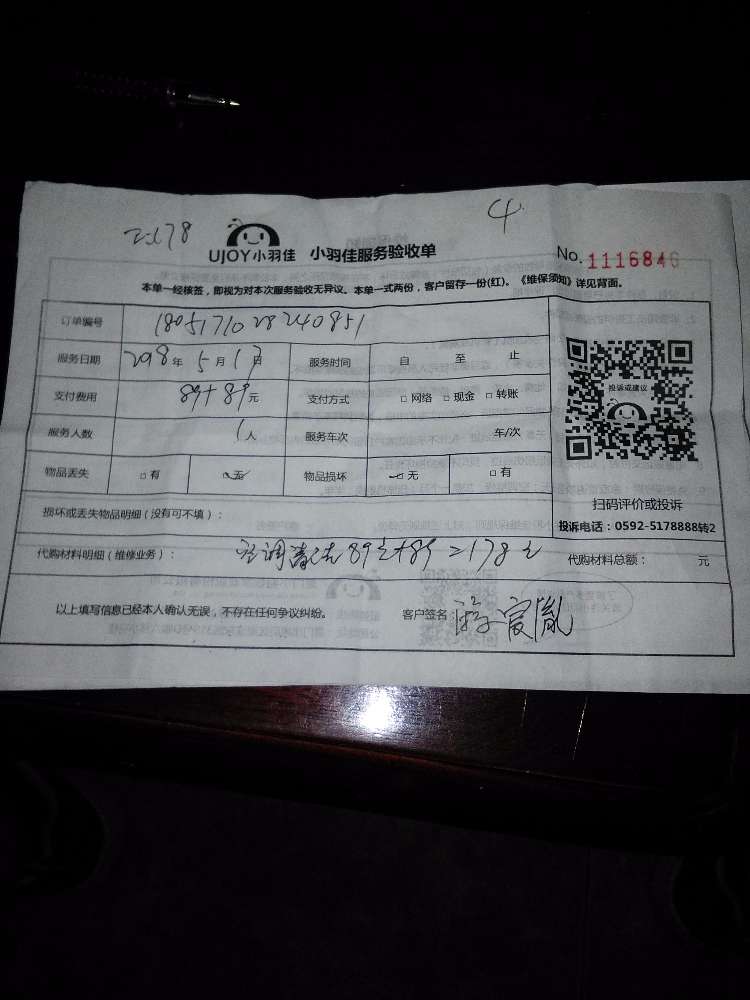 4
2178
UJOY小羽佳 小羽佳服务验收单 No. 1116846
本单一经核签，即视为对本次服务验收无异议。本单一式两份，客户留存一份(红)。《维保须知》详见背面。
订单编号 1805171028240851
服务日期 2018年5月17日 服务时间 自 至 止
支付费用 89+89元 支付方式 □网络 □现金 □转账
服务人数 1人 服务车次 车/次
物品丢失 □有 □无 物品损坏 □无 □有
投诉或建议
扫码评价或投诉
损坏或丢失物品明细（没有可不填）：
投诉电话：0592-5178888转2
代购材料明细（维修业务）： 空调清洗89元+89=178元 代购材料总额： 元
以上填写信息已经本人确认无误，不存在任何争议纠纷。 客户签名：游宸胤